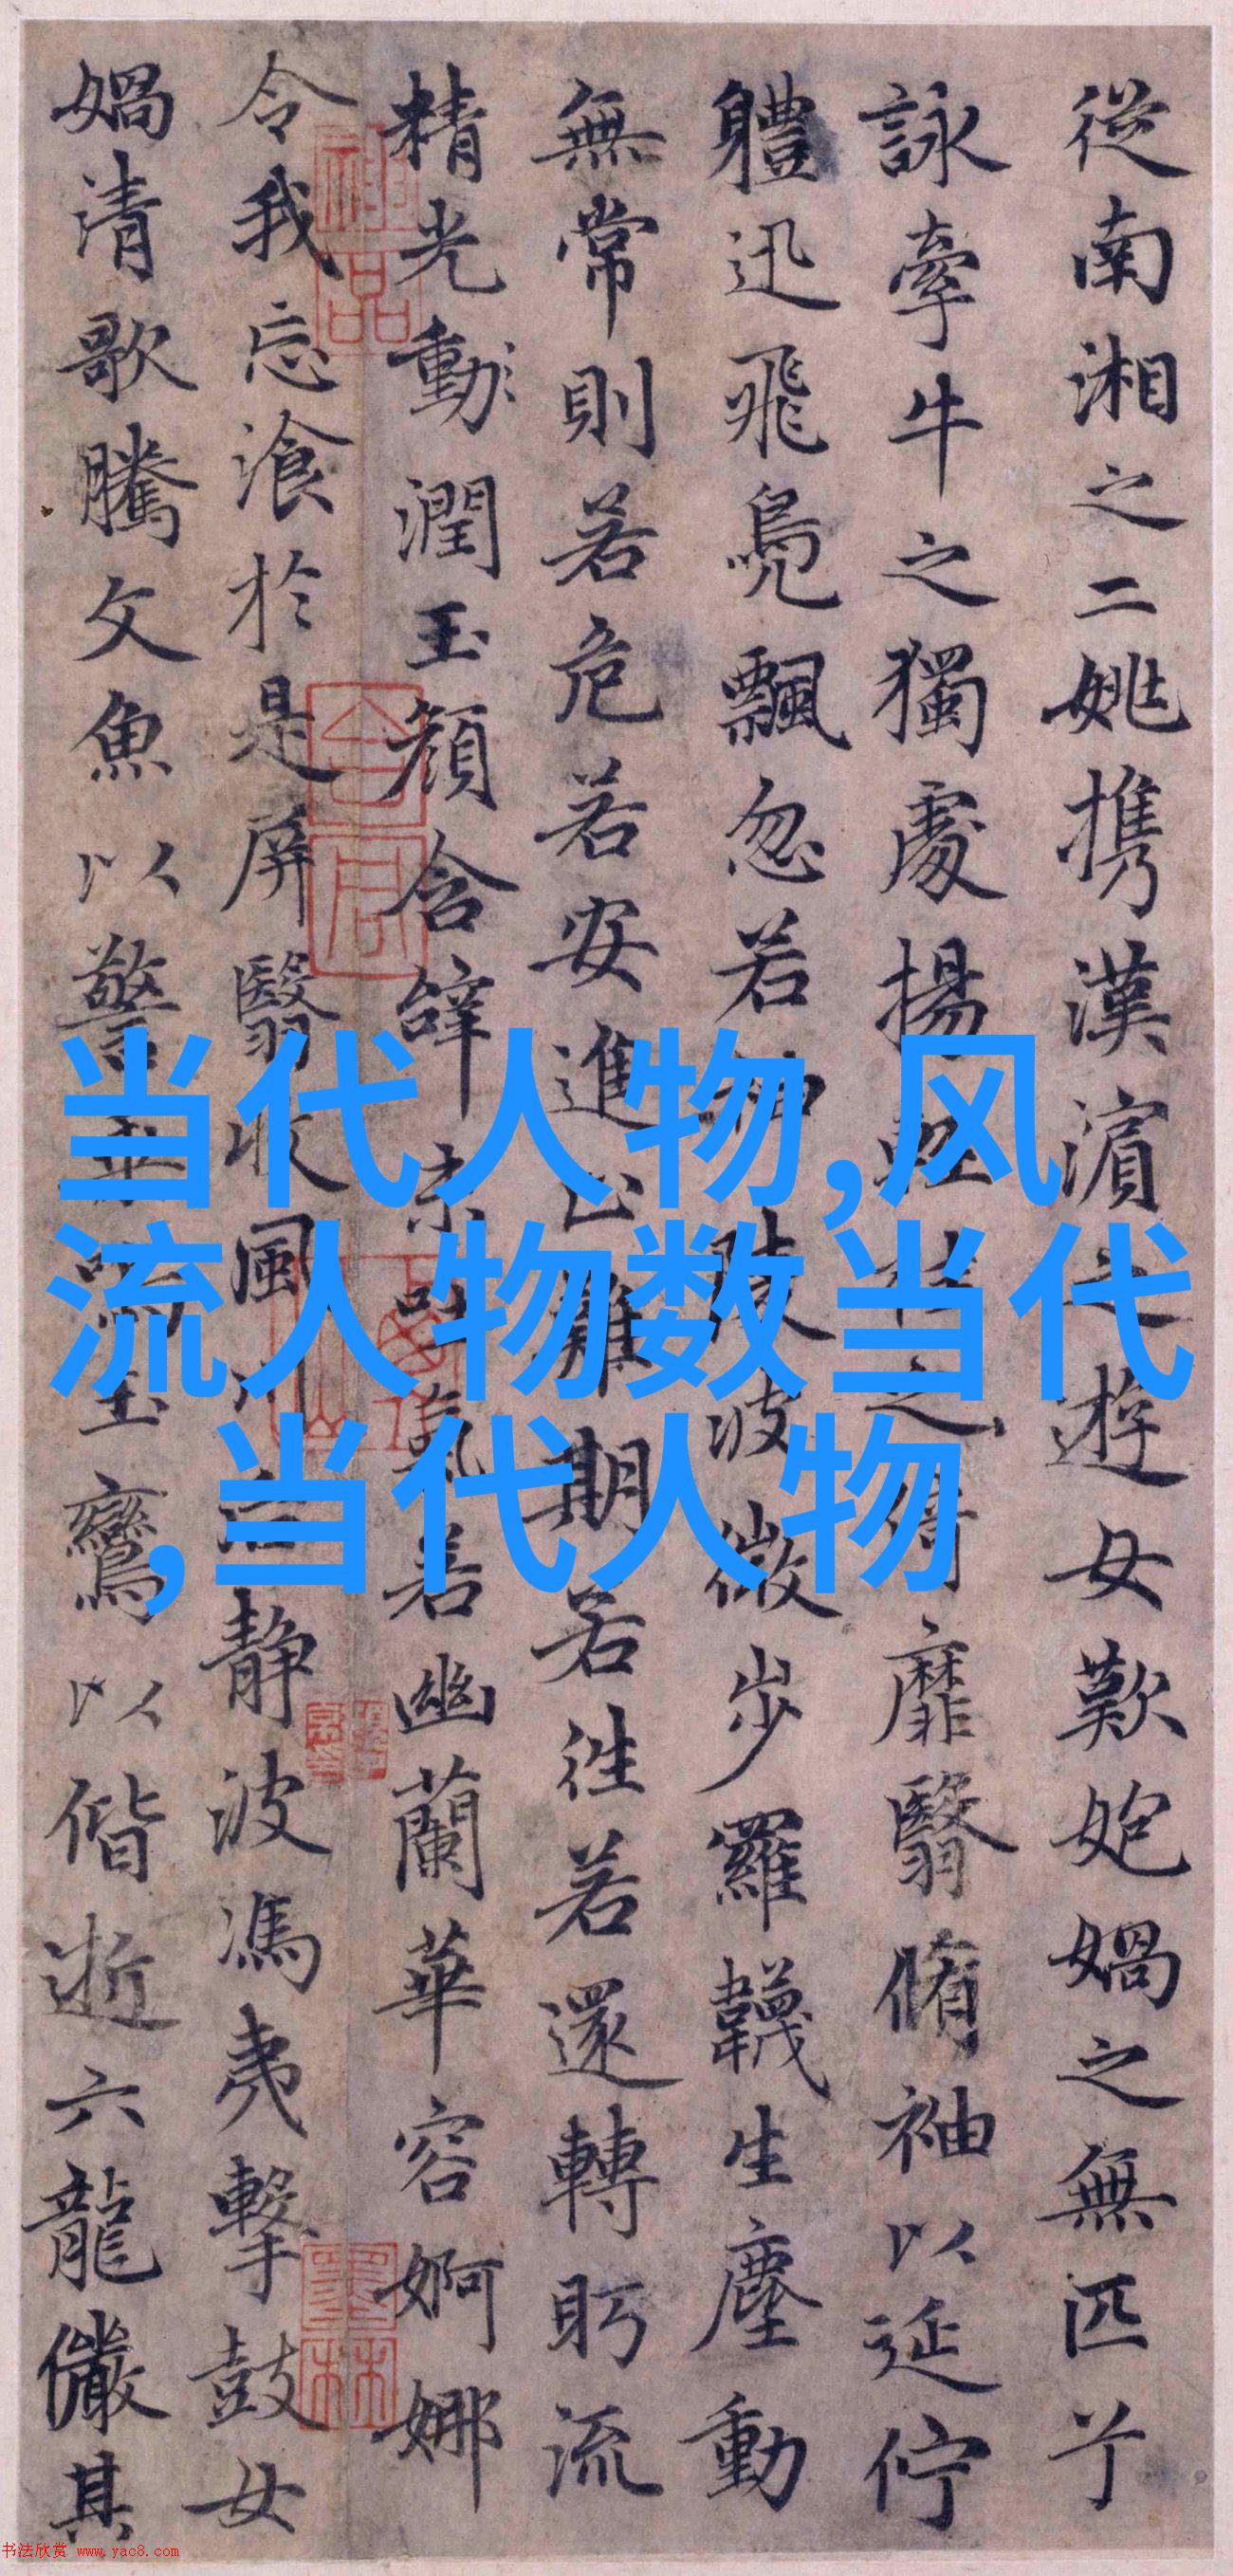 從南湘之二姚携漢濱之遊女歎匏媧之無匹兮
詠牽牛之獨處揚輕袿之綺靡翳脩袖以延佇
體迅飛鳧飄忽若神陵波微步羅韈生塵動
無常則若危若安進止難期若往若還轉眄流
精光動潤玉顏含辭未吐氣若幽蘭華容婀娜
令我忘飡於是屏翳收風川后靜波馮夷擊鼓女
媧清歌騰文魚以警乘鳴玉鸞以偕逝六龍儼其
神品
墨林
当代人物,风
流人物数当代
,当代人物
书法欣赏 www.yac8.com